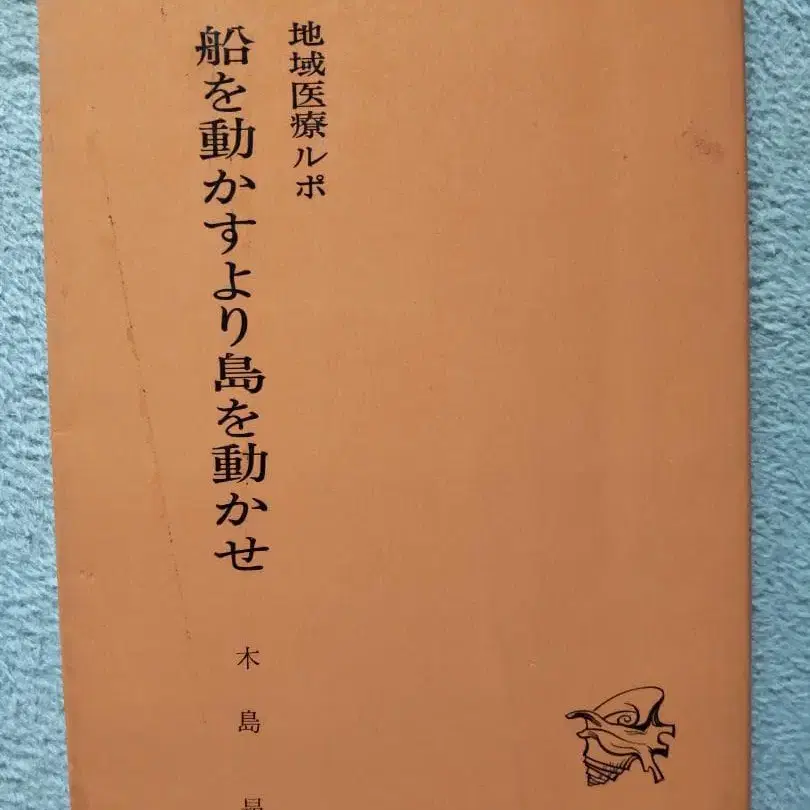 地域医療ルポ
船を動かすより島を動かせ
木島